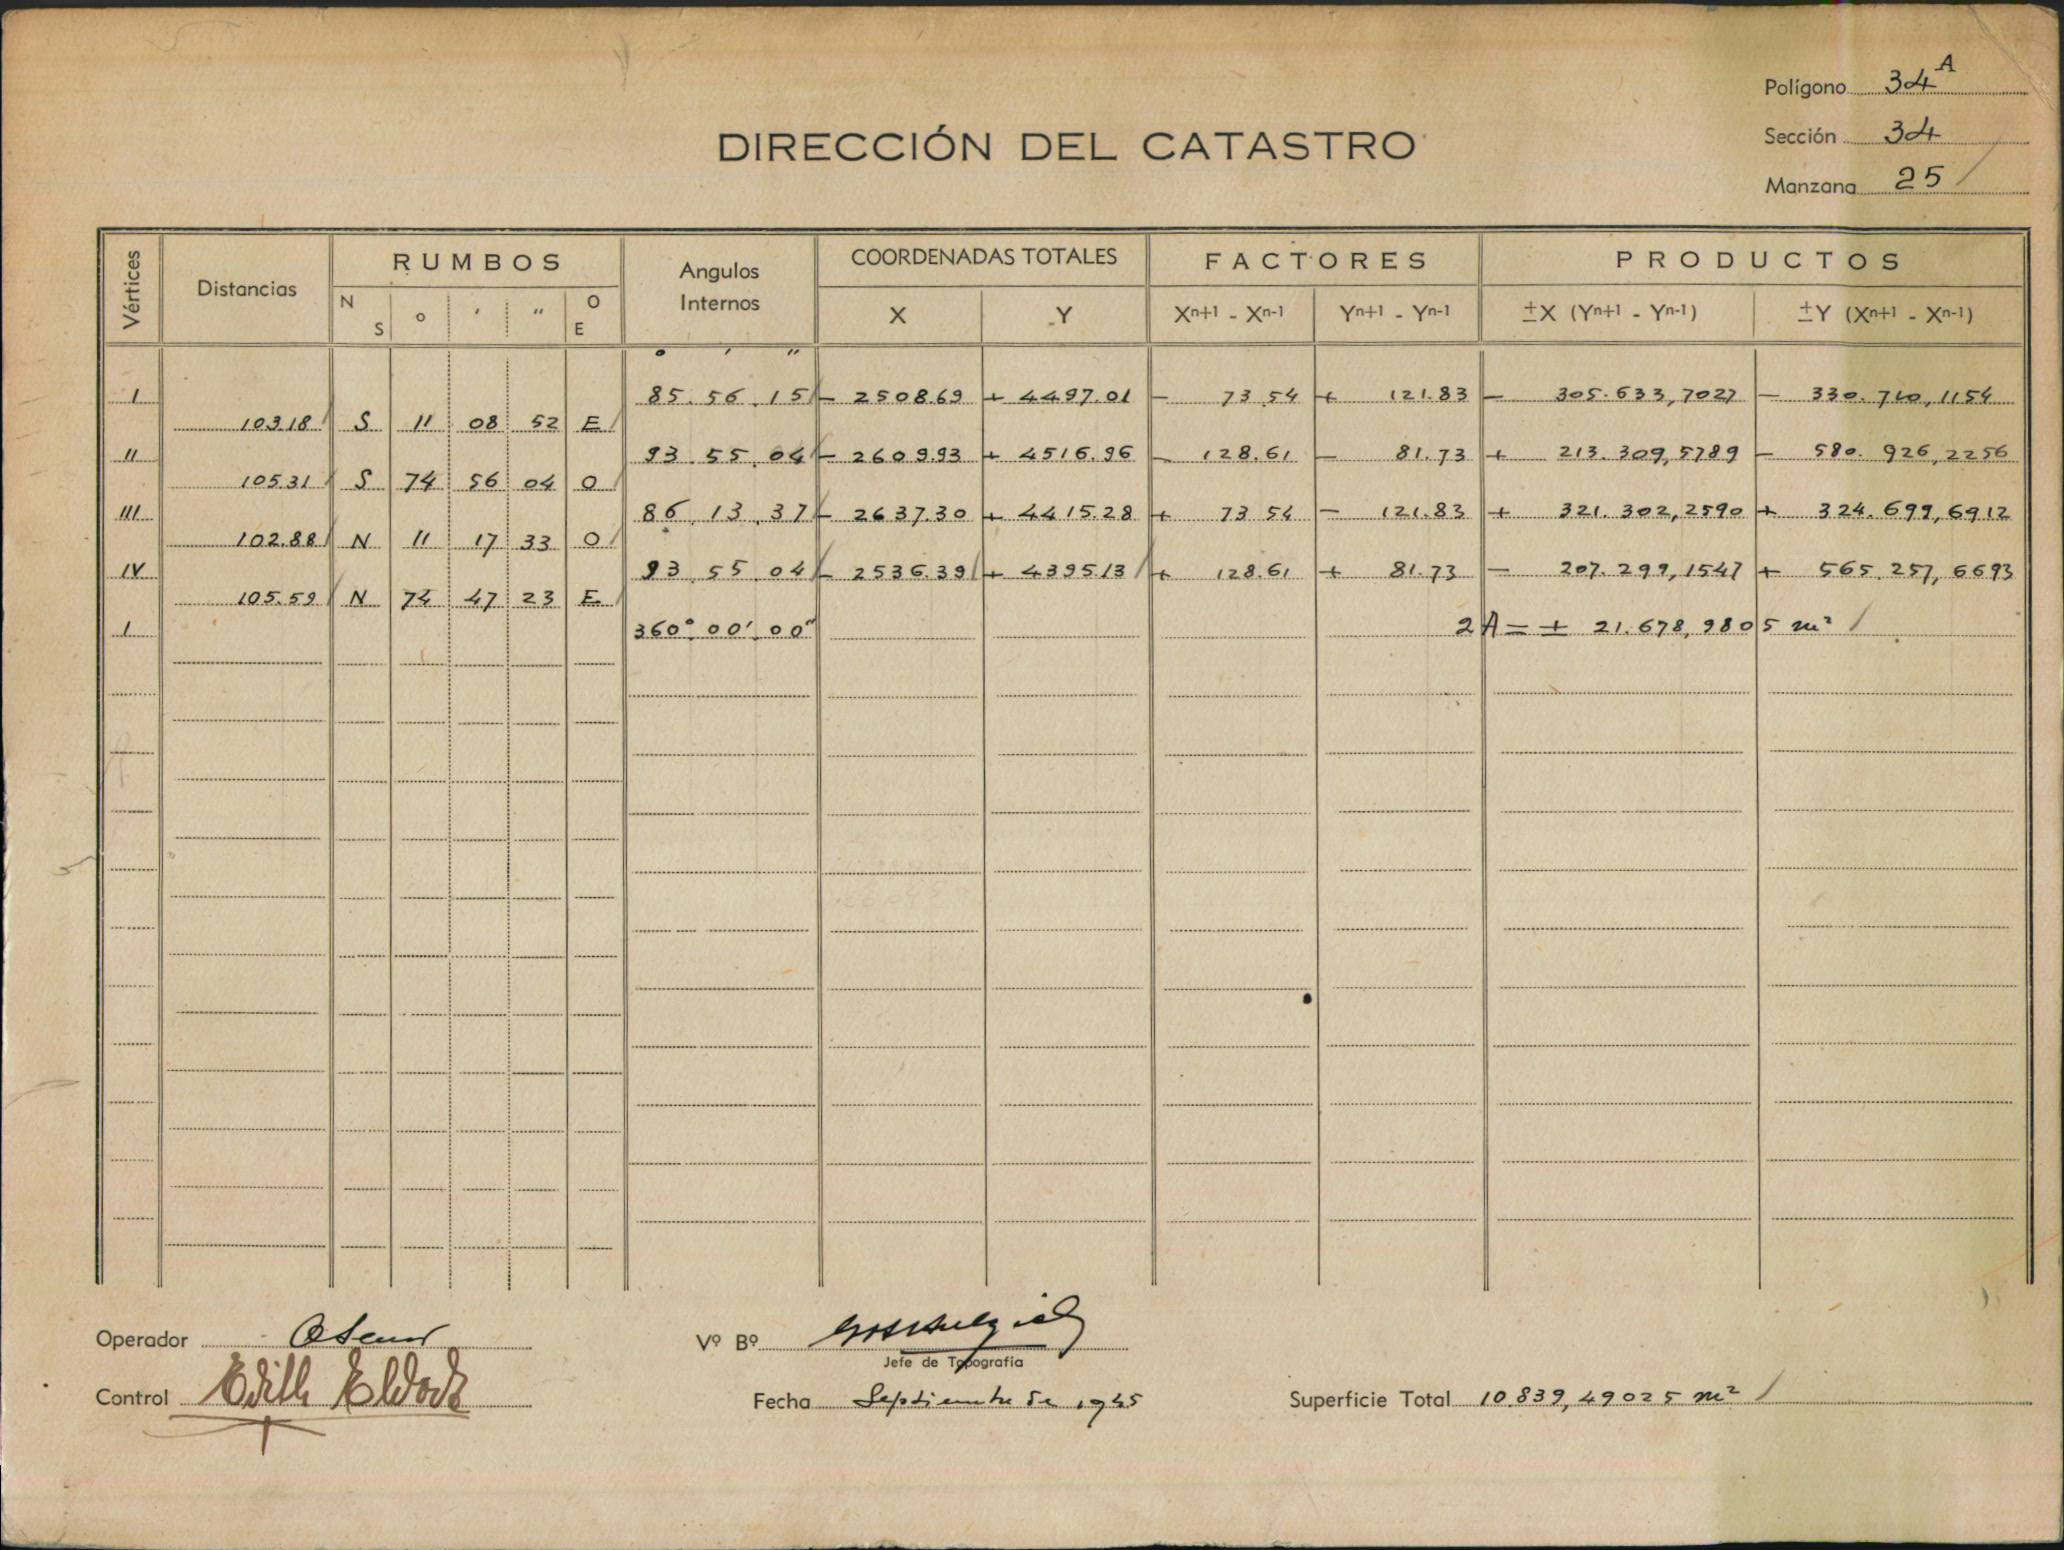 Polígono 34 A
Sección 34
Manzana 25
DIRECCIÓN DEL CATASTRO
Vértices Distancias RUMBOS Angulos Internos COORDENADAS TOTALES FACTORES PRODUCTOS
N S o ′ ″ O E X Y Xn+1 - Xn-1 Yn+1 - Yn-1 ±X (Yn+1 - Yn-1) ±Y (Xn+1 - Xn-1)
o ′ ″
I 85. 56. 15 - 2508.69 + 4497.01 - 73.54 + 121.83 - 305.633,7027 - 330.710,1154
103.18 S 11 08 52 E
II 93. 55. 04 - 2609.93 + 4516.96 - 128.61 - 81.73 + 213.309,5789 - 580.926,2256
105.31 S 74 56 04 O
III 86. 13. 37 - 2637.30 + 4415.28 + 73.54 - 121.83 + 321.302,2590 + 324.699,6912
102.88 N 11 17 33 O
IV 93. 55. 04 - 2536.39 + 4395.13 + 128.61 + 81.73 - 207.299,1547 + 565.257,6693
105.59 N 74 47 23 E
I 360° 00′ 00″ 2A = ± 21.678,9805 m²
Operador
Vº Bº
Jefe de Topografía
Control Edith
Fecha Septiembre de 1945
Superficie Total 10.839,49025 m²